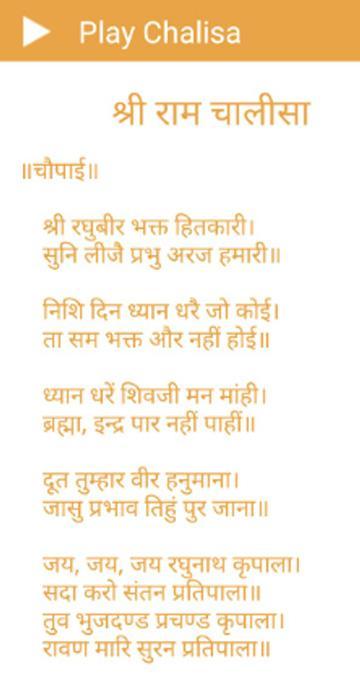 Play Chalisa
श्री राम चालीसा
॥चौपाई॥
श्री रघुबीर भक्त हितकारी।
सुनि लीजै प्रभु अरज हमारी॥
निशि दिन ध्यान धरै जो कोई।
ता सम भक्त और नहीं होई॥
ध्यान धरें शिवजी मन मांही।
ब्रह्मा, इन्द्र पार नहीं पाहीं॥
दूत तुम्हार वीर हनुमाना।
जासु प्रभाव तिहुं पुर जाना॥
जय, जय, जय रघुनाथ कृपाला।
सदा करो संतन प्रतिपाला॥
तुव भुजदण्ड प्रचण्ड कृपाला।
रावण मारि सुरन प्रतिपाला॥